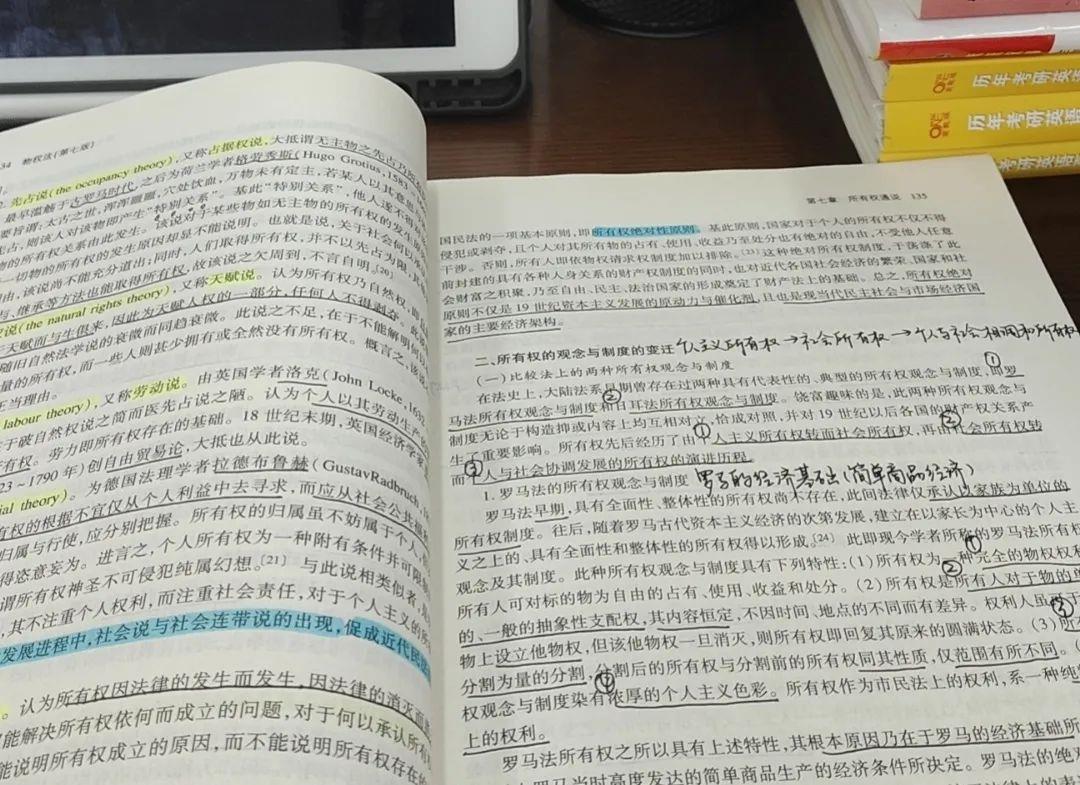 34 物权法(第七版)
先占说(the occupancy theory),又称占据说,大抵谓无主物之先占乃
最早滥觞于古罗马时代,之后为荷兰学者格劳秀斯(Hugo Grotius,1583
要旨谓:太古之世,浑浑噩噩,穴处饮血,万物未有定主,若某人以其意思
占,则该人对该物即产生“特别关系”。基此“特别关系”,他人遂不得
物的所有权关系由此发生。该说对于某些物如无主物的所有权的发生
一切物的所有权的发生原因却显不能说明。也就是说,关于社会何以
由,该说尚不能充分道出;同时,人们取得所有权,并不以先占为限,其
、继承等方法也能取得所有权,故该说之欠周到,不言自明。[20]
说(the natural rights theory),又称天赋说。认为所有权乃自然权,即
天赋而与生俱来,因此为天赋人权的一部分,任何人不得剥夺。此
随旧自然法学说的衰微而同趋衰微。此说之不足,在于不能解明何以
量的所有权,而一些人则甚少拥有或全然没有所有权。概言之,该说
正当理由。
labour theory),又称劳动说。由英国学者洛克(John Locke,1632
于破自然权说之简而医先占说之陋。认为个人以其劳动生产的
有权。劳力即所有权存在的基础。18世纪末期,英国经济学家
23~1790年)创自由贸易论,大抵也从此说。
ial theory)。为德国法理学者拉德布鲁赫(GustavRadbruch,
有权的根据不宜仅从个人利益中去寻求,而应从社会公共福
归属与行使,应分别把握。所有权的归属虽不妨属于个人,
得恣意妄为。进言之,个人所有权为一种附有条件并可限制
谓所有权神圣不可侵犯纯属幻想。[21] 与此说相类似者,
其不注重个人权利,而注重社会责任,对于个人主义的所
发展进程中,社会说与社会连带说的出现,促成近代民法
。认为所有权因法律的发生而发生,因法律的消灭而
能解决所有权依何而成立的问题,对于何以承认所有
能说明所有权成立的原因,而不能说明所有权存在的
第七章 所有权通说 135
国民法的一项基本原则,即所有权绝对性原则。基此原则,国家对于个人的所有权不仅不得
侵犯或剥夺,且个人对其所有物的占有、使用、收益乃至处分也有绝对的自由,不受他人任意
干涉。否则,所有人即依物权请求权制度加以排除。[23]这种绝对所有权制度,于荡涤了此
前封建的具有各种人身关系的财产权制度的同时,也对近代各国社会经济的繁荣、国家和社
会财富之积聚,乃至自由、民主、法治国家的形成奠定了财产法上的基础。总之,所有权绝对
原则不仅是19世纪资本主义发展的原动力与催化剂,且也是现当代民主社会与市场经济国
家的主要经济架构。
二、所有权的观念与制度的变迁 个人主义所有权→社会所有权→个人与社会相调和所有权
(一)比较法上的两种所有权观念与制度
在法史上,大陆法系早期曾存在过两种具有代表性的、典型的所有权观念与制度,即①罗
马法所有权观念与制度和②日耳法所有权观念与制度。饶富趣味的是,此两种所有权观念与
制度无论于构造抑或内容上均互相对立,恰成对照,并对19世纪以后各国的财产权关系产
生了重要影响。所有权先后经历了由①个人主义所有权转而社会所有权,再由②社会所有权转
而③个人与社会协调发展的所有权的演进历程。
1. 罗马法的所有权观念与制度 罗马的经济基础(简单商品经济)
罗马法早期,具有全面性、整体性的所有权尚不存在,此间法律仅承认以家族为单位的
所有权制度。往后,随着罗马古代资本主义经济的次第发展,建立在以家长为中心的个人主
义之上的、具有全面性和整体性的所有权得以形成。[24] 此即现今学者所称的罗马法所有权
观念及其制度。此种所有权观念与制度具有下列特性:(1)所有权为①一种完全的物权权利
所有人可对标的物为自由的占有、使用、收益和处分。(2)所有权是②所有人对于物的
的、一般的抽象性支配权,其内容恒定,不因时间、地点的不同而有差异。权利人虽
物上设立他物权,但该他物权一旦消灭,则所有权即回复其原来的圆满状态。(3)③所
分割为量的分割,分割后的所有权与分割前的所有权同其性质,仅范围有所不同。
权观念与制度染有④浓厚的个人主义色彩。所有权作为市民法上的权利,系一种纯
上的权利。
罗马法所有权之所以具有上述特性,其根本原因乃在于罗马的经济基础所
罗马当时高度发达的简单商品生产的经济条件所决定。罗马法的绝
历年考研英语
历年考研英语
历年考研英语